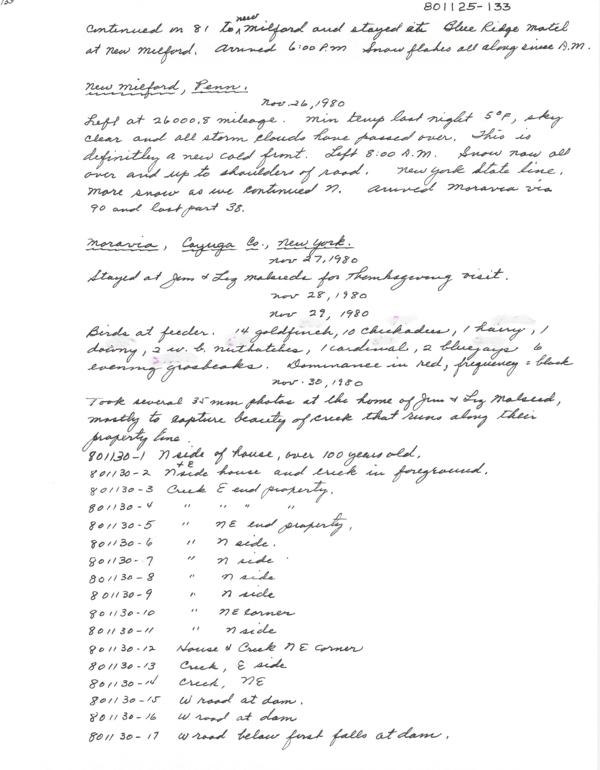 801125-133
Continued on 81 to new milford and stayed at Blue Ridge motel
at new milford. Arrived 6:00 P.m Snow flakes all along since A.M.
new milford, Penn.
nov 26, 1980
Left at 26000.8 mileage. min temp last night 5°F, sky
clear and all storm clouds have passed over. This is
definitley a new cold front. Left 8:00 A.M. Snow now all
over and up to shoulders of road. new york state line.
more snow as we continued N. arrived moravia via
90 and last part 38.
moravia, Cayuga Co., new york.
nov 27, 1980
Stayed at Jim & Liz malseeds for Thanksgiving visit.
nov 28, 1980
nov 29, 1980
Birds at feeder. 14 goldfinch, 10 chickadees, 1 hairy, 1
downy, 2 w. b. nuthatches, 1 cardinal, 2 bluejays 6
evening grosbeaks. Dominance in red, frequency = black
nov. 30, 1980
Took several 35 mm photos at the home of Jim & Liz malseed,
mostly to capture beauty of creek that runs along their
property line.
801130-1 N side of house, over 100 years old.
801130-2 N + E side house and creek in foreground.
801130-3 Creek E end property.
801130-4 " " " "
801130-5 " NE end property.
801130-6 " N side.
801130-7 " N side
801130-8 " N side
801130-9 " N side
801130-10 " NE corner
801130-11 " N side
801130-12 House & Creek NE corner
801130-13 Creek, E side
801130-14 Creek, NE
801130-15 W road at dam.
801130-16 W road at dam
801130-17 W road below first falls at dam.